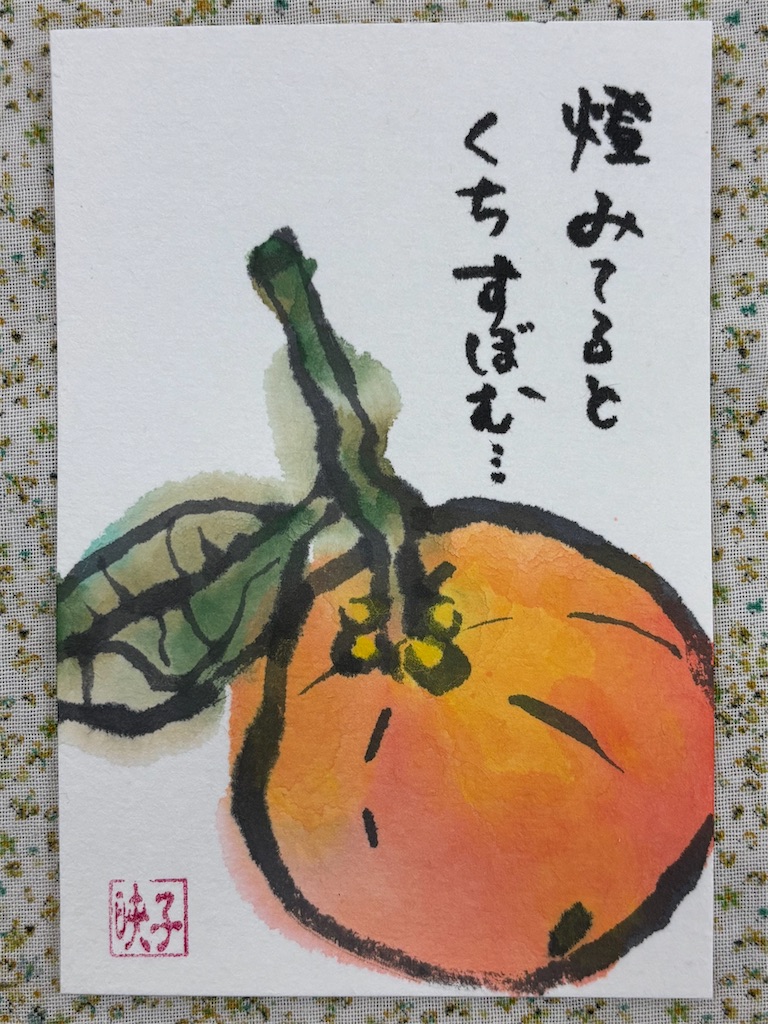 燈みてると
くちすぼむ…
映子